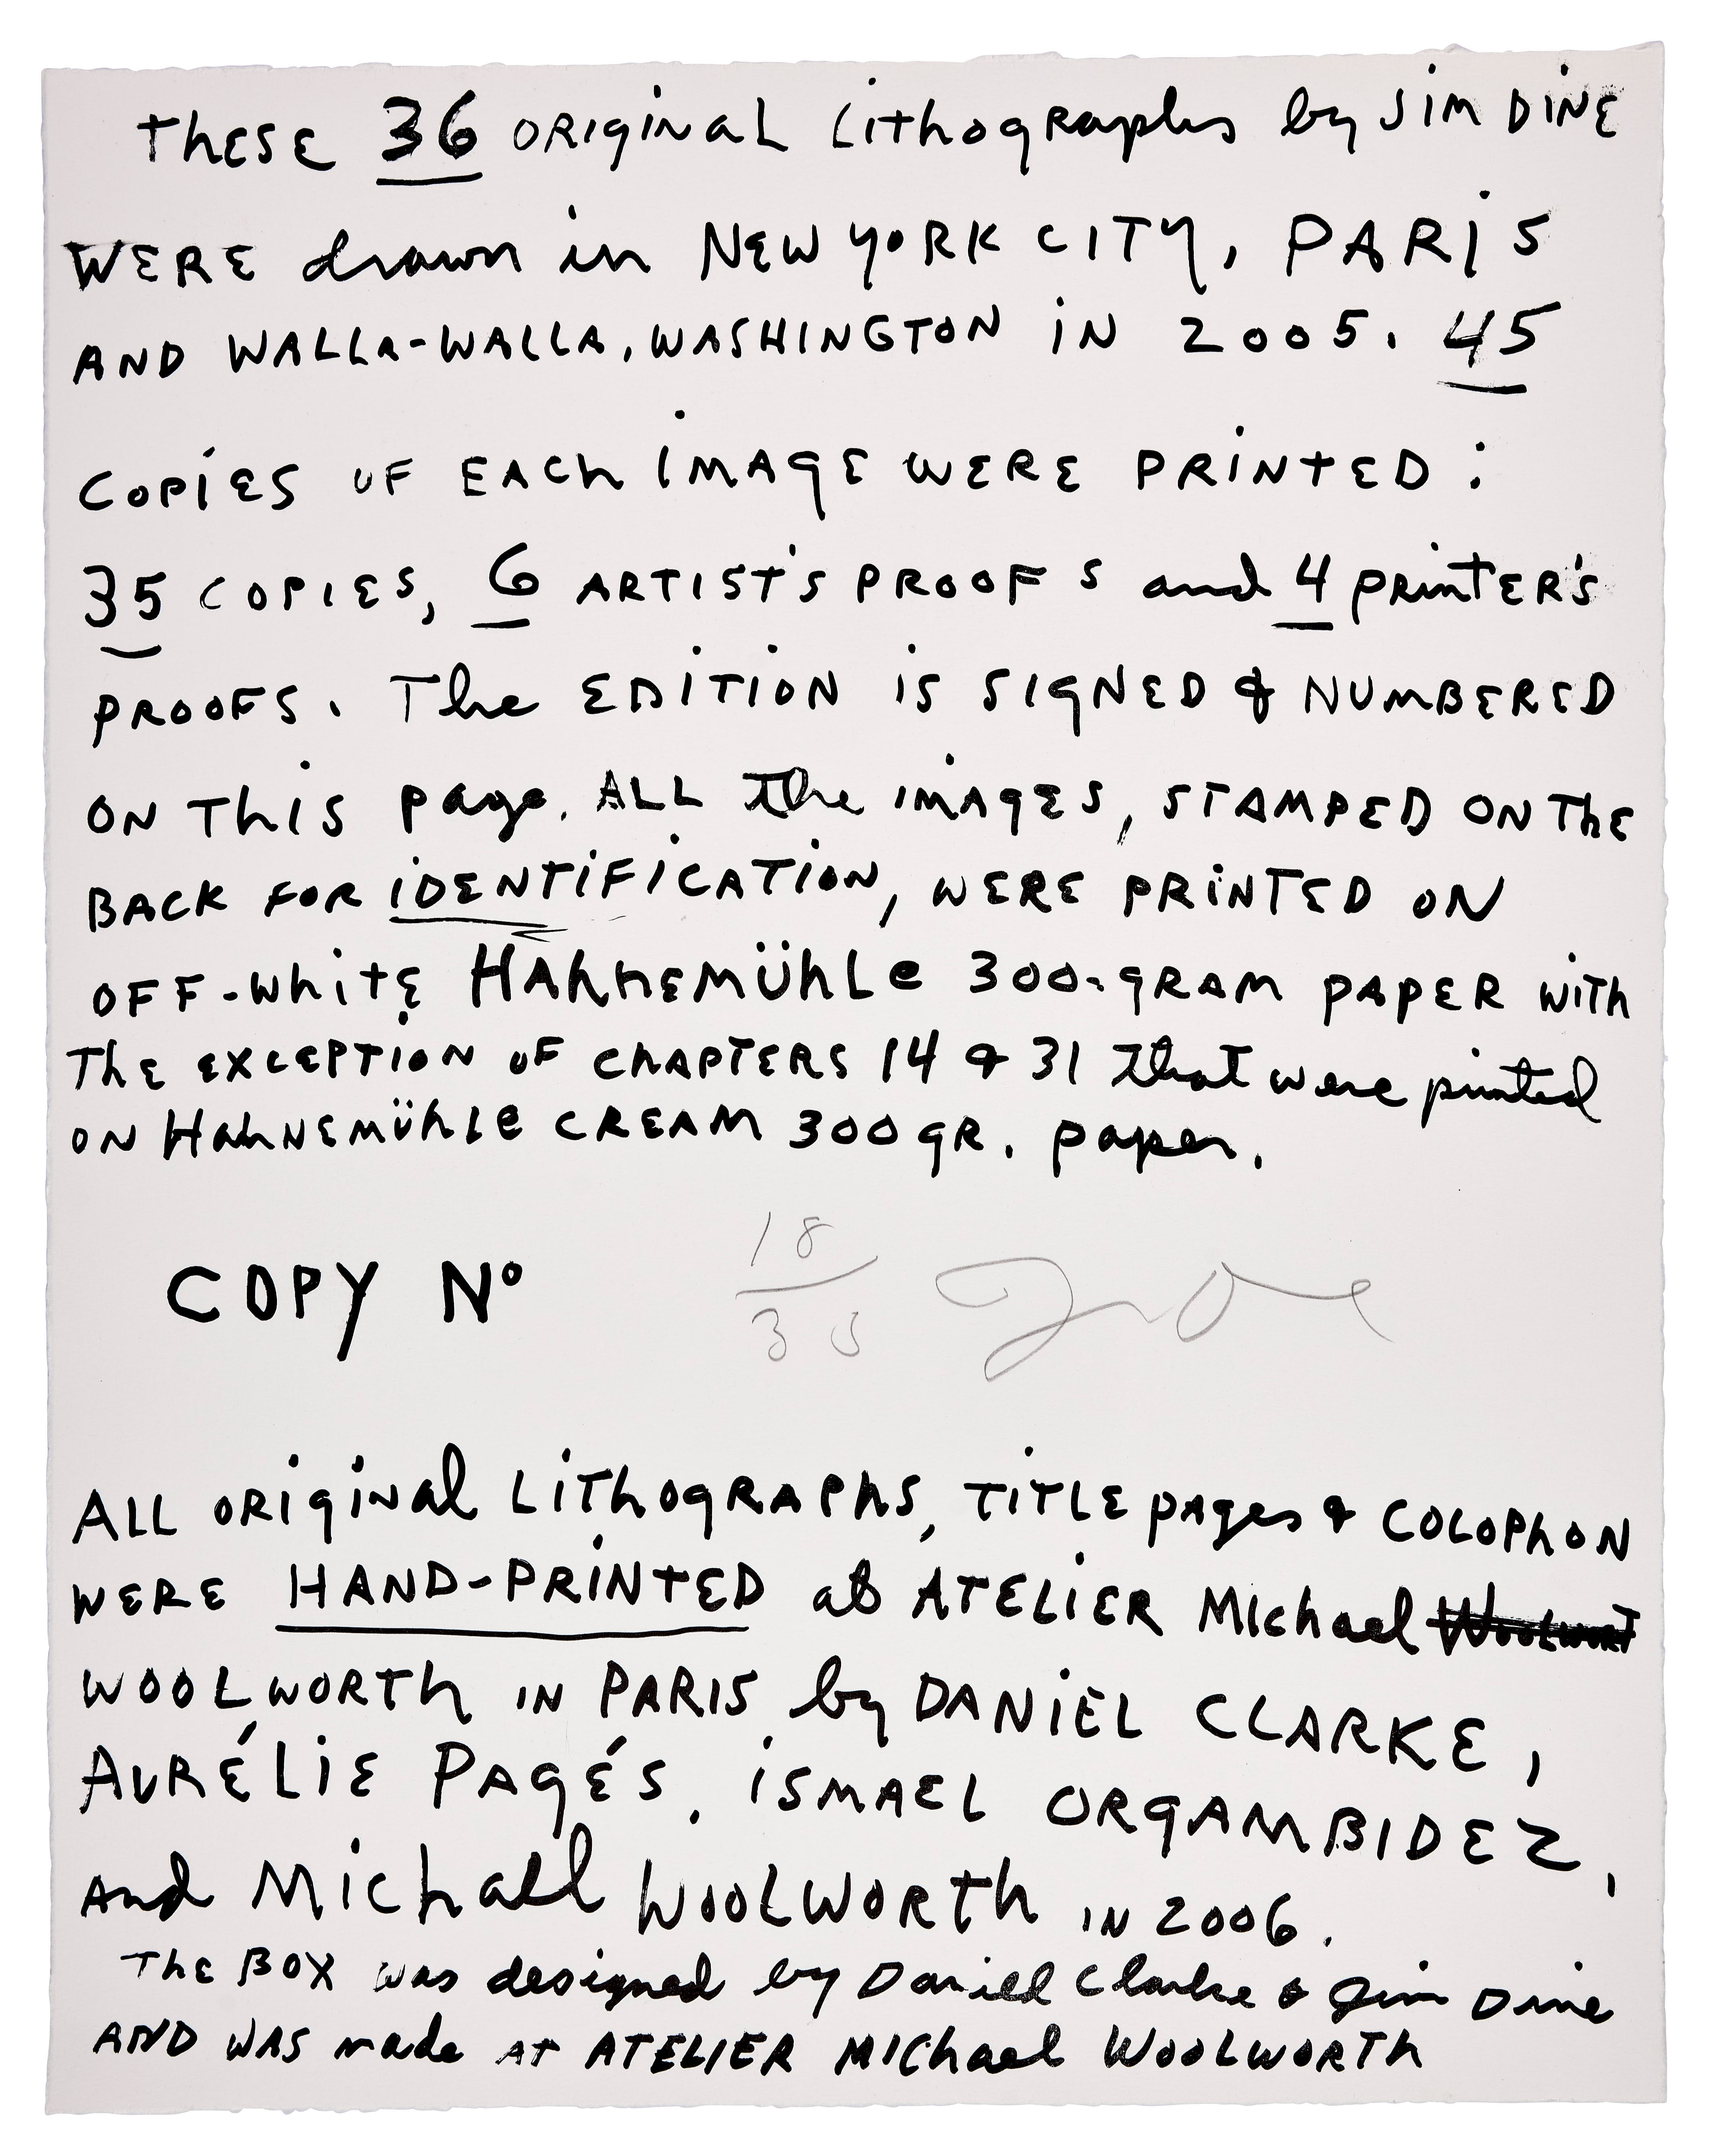 These 36 original Lithographs by Jim Dine
were drawn in New York City, Paris
and Walla-Walla, Washington in 2005. 45
copies of each image were printed:
35 copies, 6 artist's proofs and 4 printer's
proofs. The edition is signed & numbered
on this page. All the images, stamped on the
back for identification, were printed on
off-white Hahnemühle 300-gram paper with
the exception of chapters 14 & 31 that were printed
on Hahnemühle cream 300 gr. paper.
COPY Nº 18/35 Jim Dine
All original Lithographs, title pages & colophon
were HAND-PRINTED at Atelier Michael Woolwort
Woolworth in Paris by Daniel Clarke,
Aurélie Pagés, Ismael Orgambidez,
and Michael Woolworth in 2006.
The box was designed by Daniel Clarke & Jim Dine
and was made at Atelier Michael Woolworth